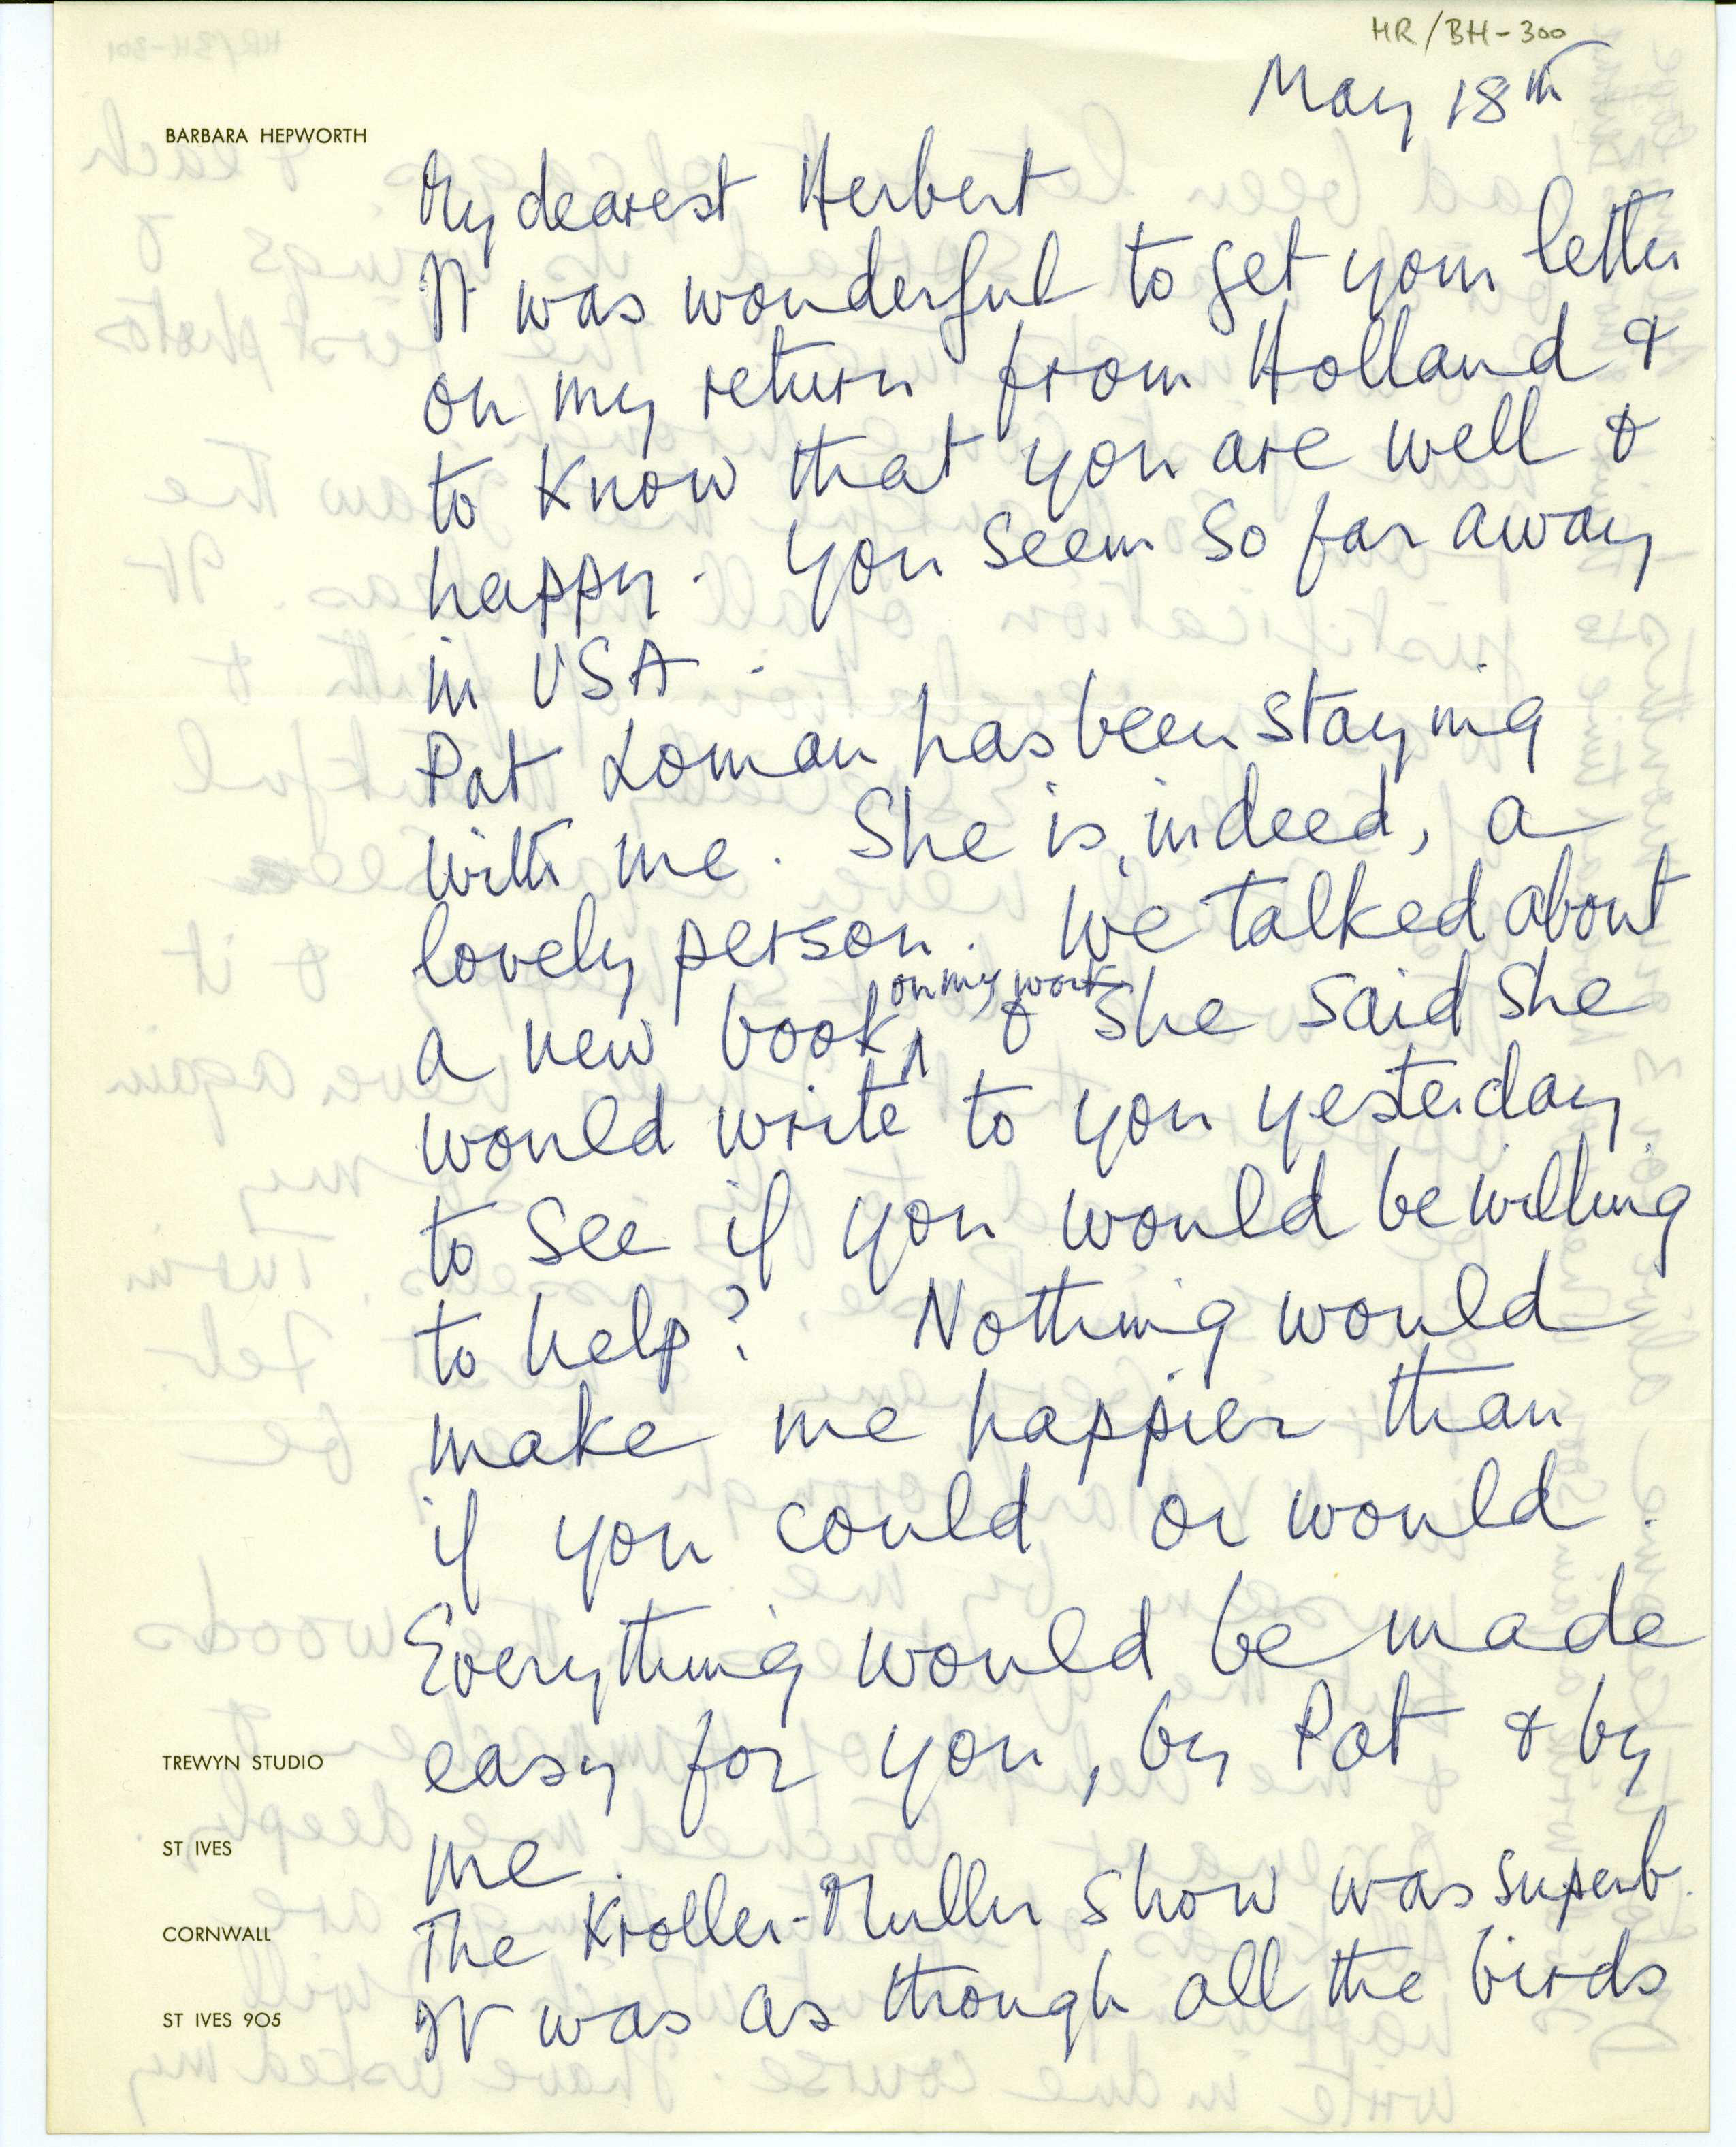 HR/BH-300
May 18th
BARBARA HEPWORTH
My dearest Herbert
It was wonderful to get your letter
on my return from Holland &
to know that you are well &
happy. You seem so far away
in USA.
Pat Loman has been staying
with me. She is, indeed, a
lovely person. We talked about
a new book on my work & she said she
would write to you yesterday
to see if you would be willing
to help? Nothing would
make me happier than
if you could or would.
Everything would be made
easy for you, by Pat & by
me.
The Kroller-Muller show was superb.
It was as though all the birds
TREWYN STUDIO
ST IVES
CORNWALL
ST IVES 905